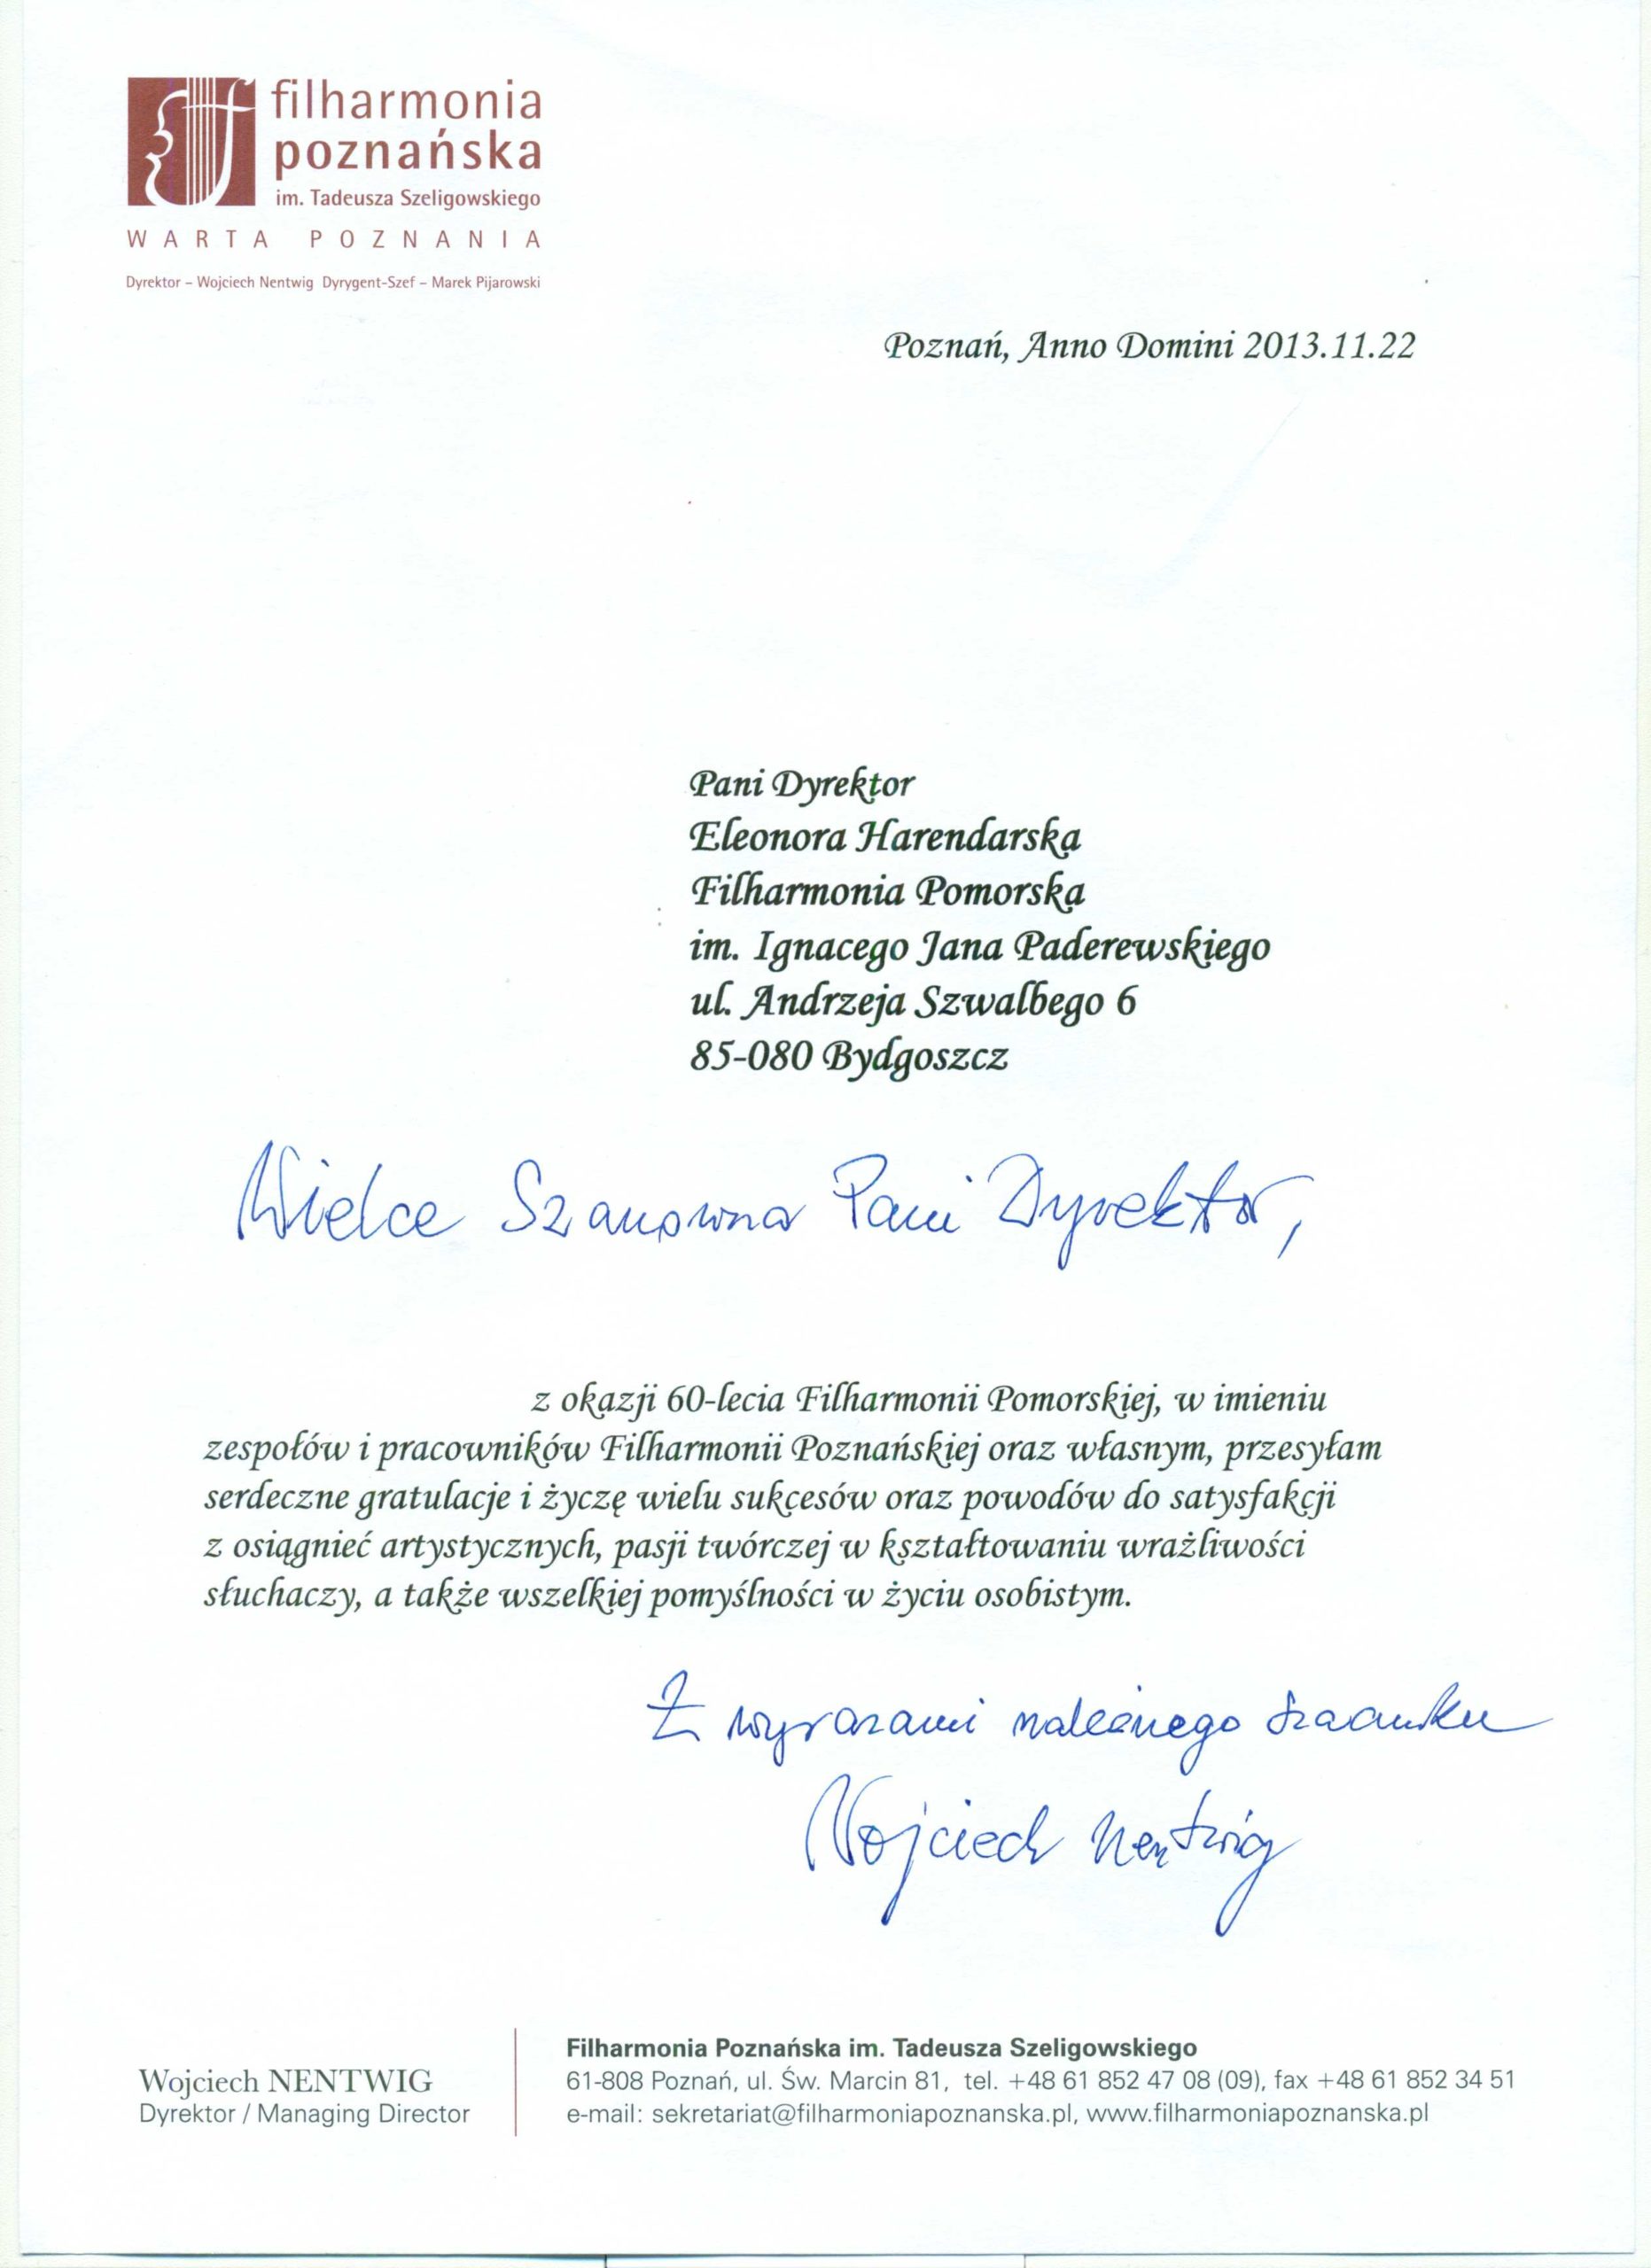 filharmonia
poznańska
im. Tadeusza Szeligowskiego
WARTA POZNANIA
Dyrektor – Wojciech Nentwig Dyrygent-Szef – Marek Pijarowski
Poznań, Anno Domini 2013.11.22
Pani Dyrektor
Eleonora Harendarska
Filharmonia Pomorska
im. Ignacego Jana Paderewskiego
ul. Andrzeja Szwalbego 6
85-080 Bydgoszcz
Wielce Szanowna Pani Dyrektor,
z okazji 60-lecia Filharmonii Pomorskiej, w imieniu
zespołów i pracowników Filharmonii Poznańskiej oraz własnym, przesyłam
serdeczne gratulacje i życzę wielu sukcesów oraz powodów do satysfakcji
z osiągnieć artystycznych, pasji twórczej w kształtowaniu wrażliwości
słuchaczy, a także wszelkiej pomyślności w życiu osobistym.
Z wyrazami należnego szacunku
Wojciech Nentwig
Wojciech NENTWIG
Dyrektor / Managing Director
Filharmonia Poznańska im. Tadeusza Szeligowskiego
61-808 Poznań, ul. Św. Marcin 81, tel. +48 61 852 47 08 (09), fax +48 61 852 34 51
e-mail: sekretariat@filharmoniapoznanska.pl, www.filharmoniapoznanska.pl